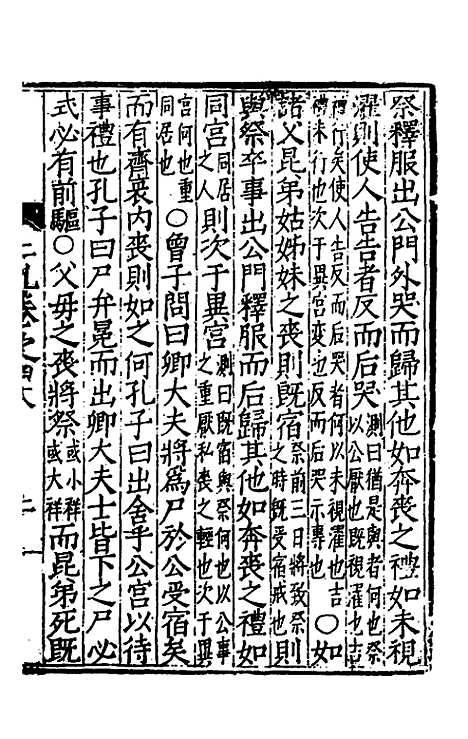 祭釋服出公門外哭而歸其他如奔喪之禮如未視
濯則使人告告者反而后哭測曰猶是與者何也祭以公厭也既視濯也吉
禮行矣使人告反而后哭者何以未視濯也吉禮未行也次于異宮變也反而后哭示專也○如
諸父昆弟姑姊妹之喪則既宿祭前三日將致祭之時既受宿戒也則
與祭卒事出公門釋服而后歸其他如奔喪之禮如
同宮同居之人則次于異宮測曰既宿與祭何也以公事之重厭私喪之輕也次于異
宮何也重同居也○曾子問曰卿大夫將爲尸於公受宿矣
而有齊衰内喪則如之何孔子曰出舍乎公宮以待
事禮也孔子曰尸弁冕而出卿大夫士皆下之尸必
式必有前驅○父母之喪將祭或小祥或大祥而昆弟死既
二禮
卷之四